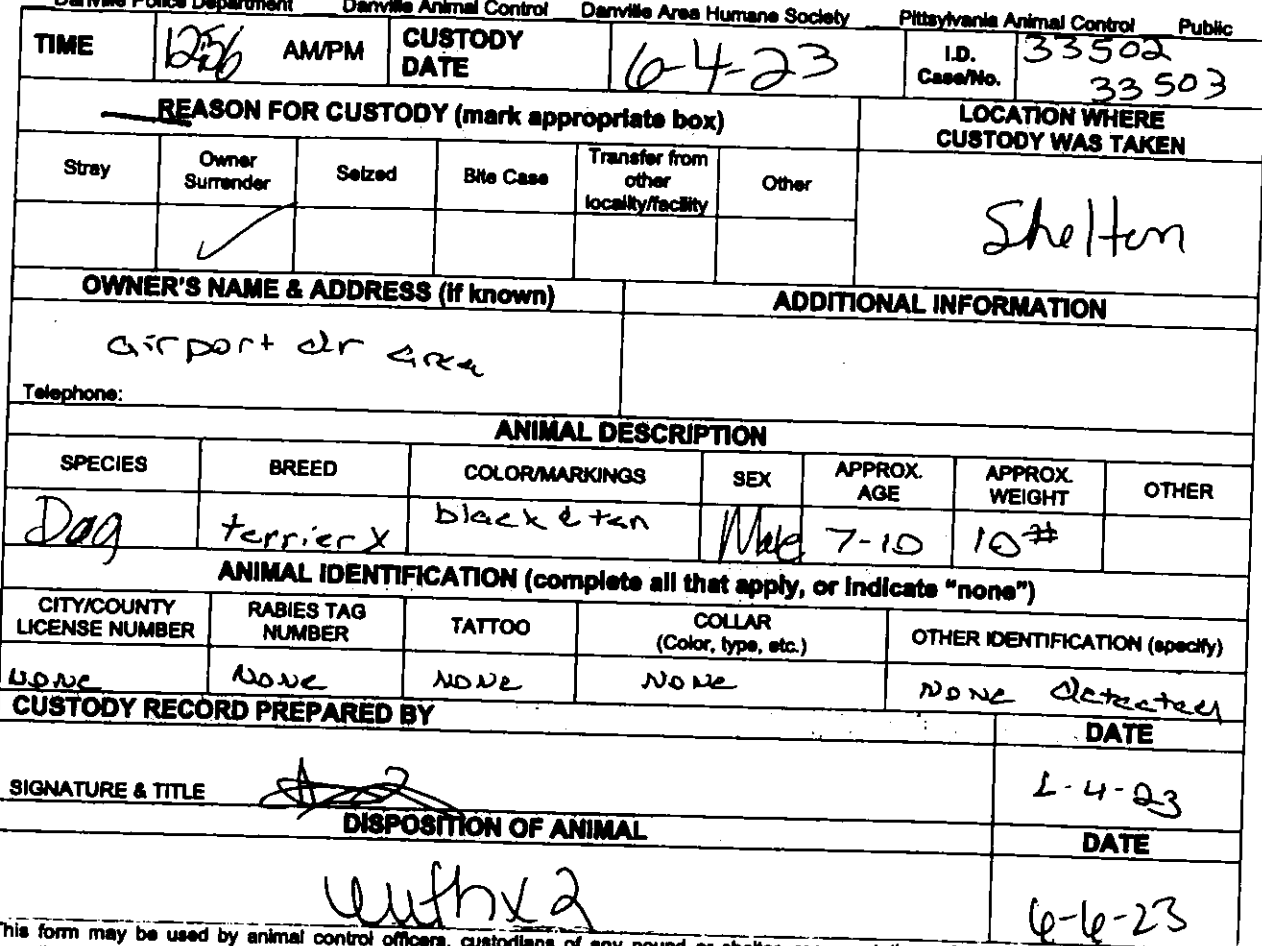 Danville Police Department Danville Animal Control Danville Area Humane Society Pittsylvania Animal Control Public
TIME 12:56 AM/PM CUSTODY DATE 6-4-23 I.D. Case/No. 33502
33503
REASON FOR CUSTODY (mark appropriate box) LOCATION WHERE CUSTODY WAS TAKEN
Stray Owner Surrender Seized Bite Case Transfer from other locality/facility Other
✓ Shelton
OWNER'S NAME & ADDRESS (if known) ADDITIONAL INFORMATION
airport dr area
Telephone:
ANIMAL DESCRIPTION
SPECIES BREED COLOR/MARKINGS SEX APPROX. AGE APPROX. WEIGHT OTHER
Dog terrier X black & tan Male 7-10 10#
ANIMAL IDENTIFICATION (complete all that apply, or indicate "none")
CITY/COUNTY LICENSE NUMBER RABIES TAG NUMBER TATTOO COLLAR (Color, type, etc.) OTHER IDENTIFICATION (specify)
NONE NONE NONE NONE NONE detected
CUSTODY RECORD PREPARED BY DATE
SIGNATURE & TITLE 6-4-23
DISPOSITION OF ANIMAL DATE
euthx2 6-6-23
This form may be used by animal control officers, custodians of any pound or shelter